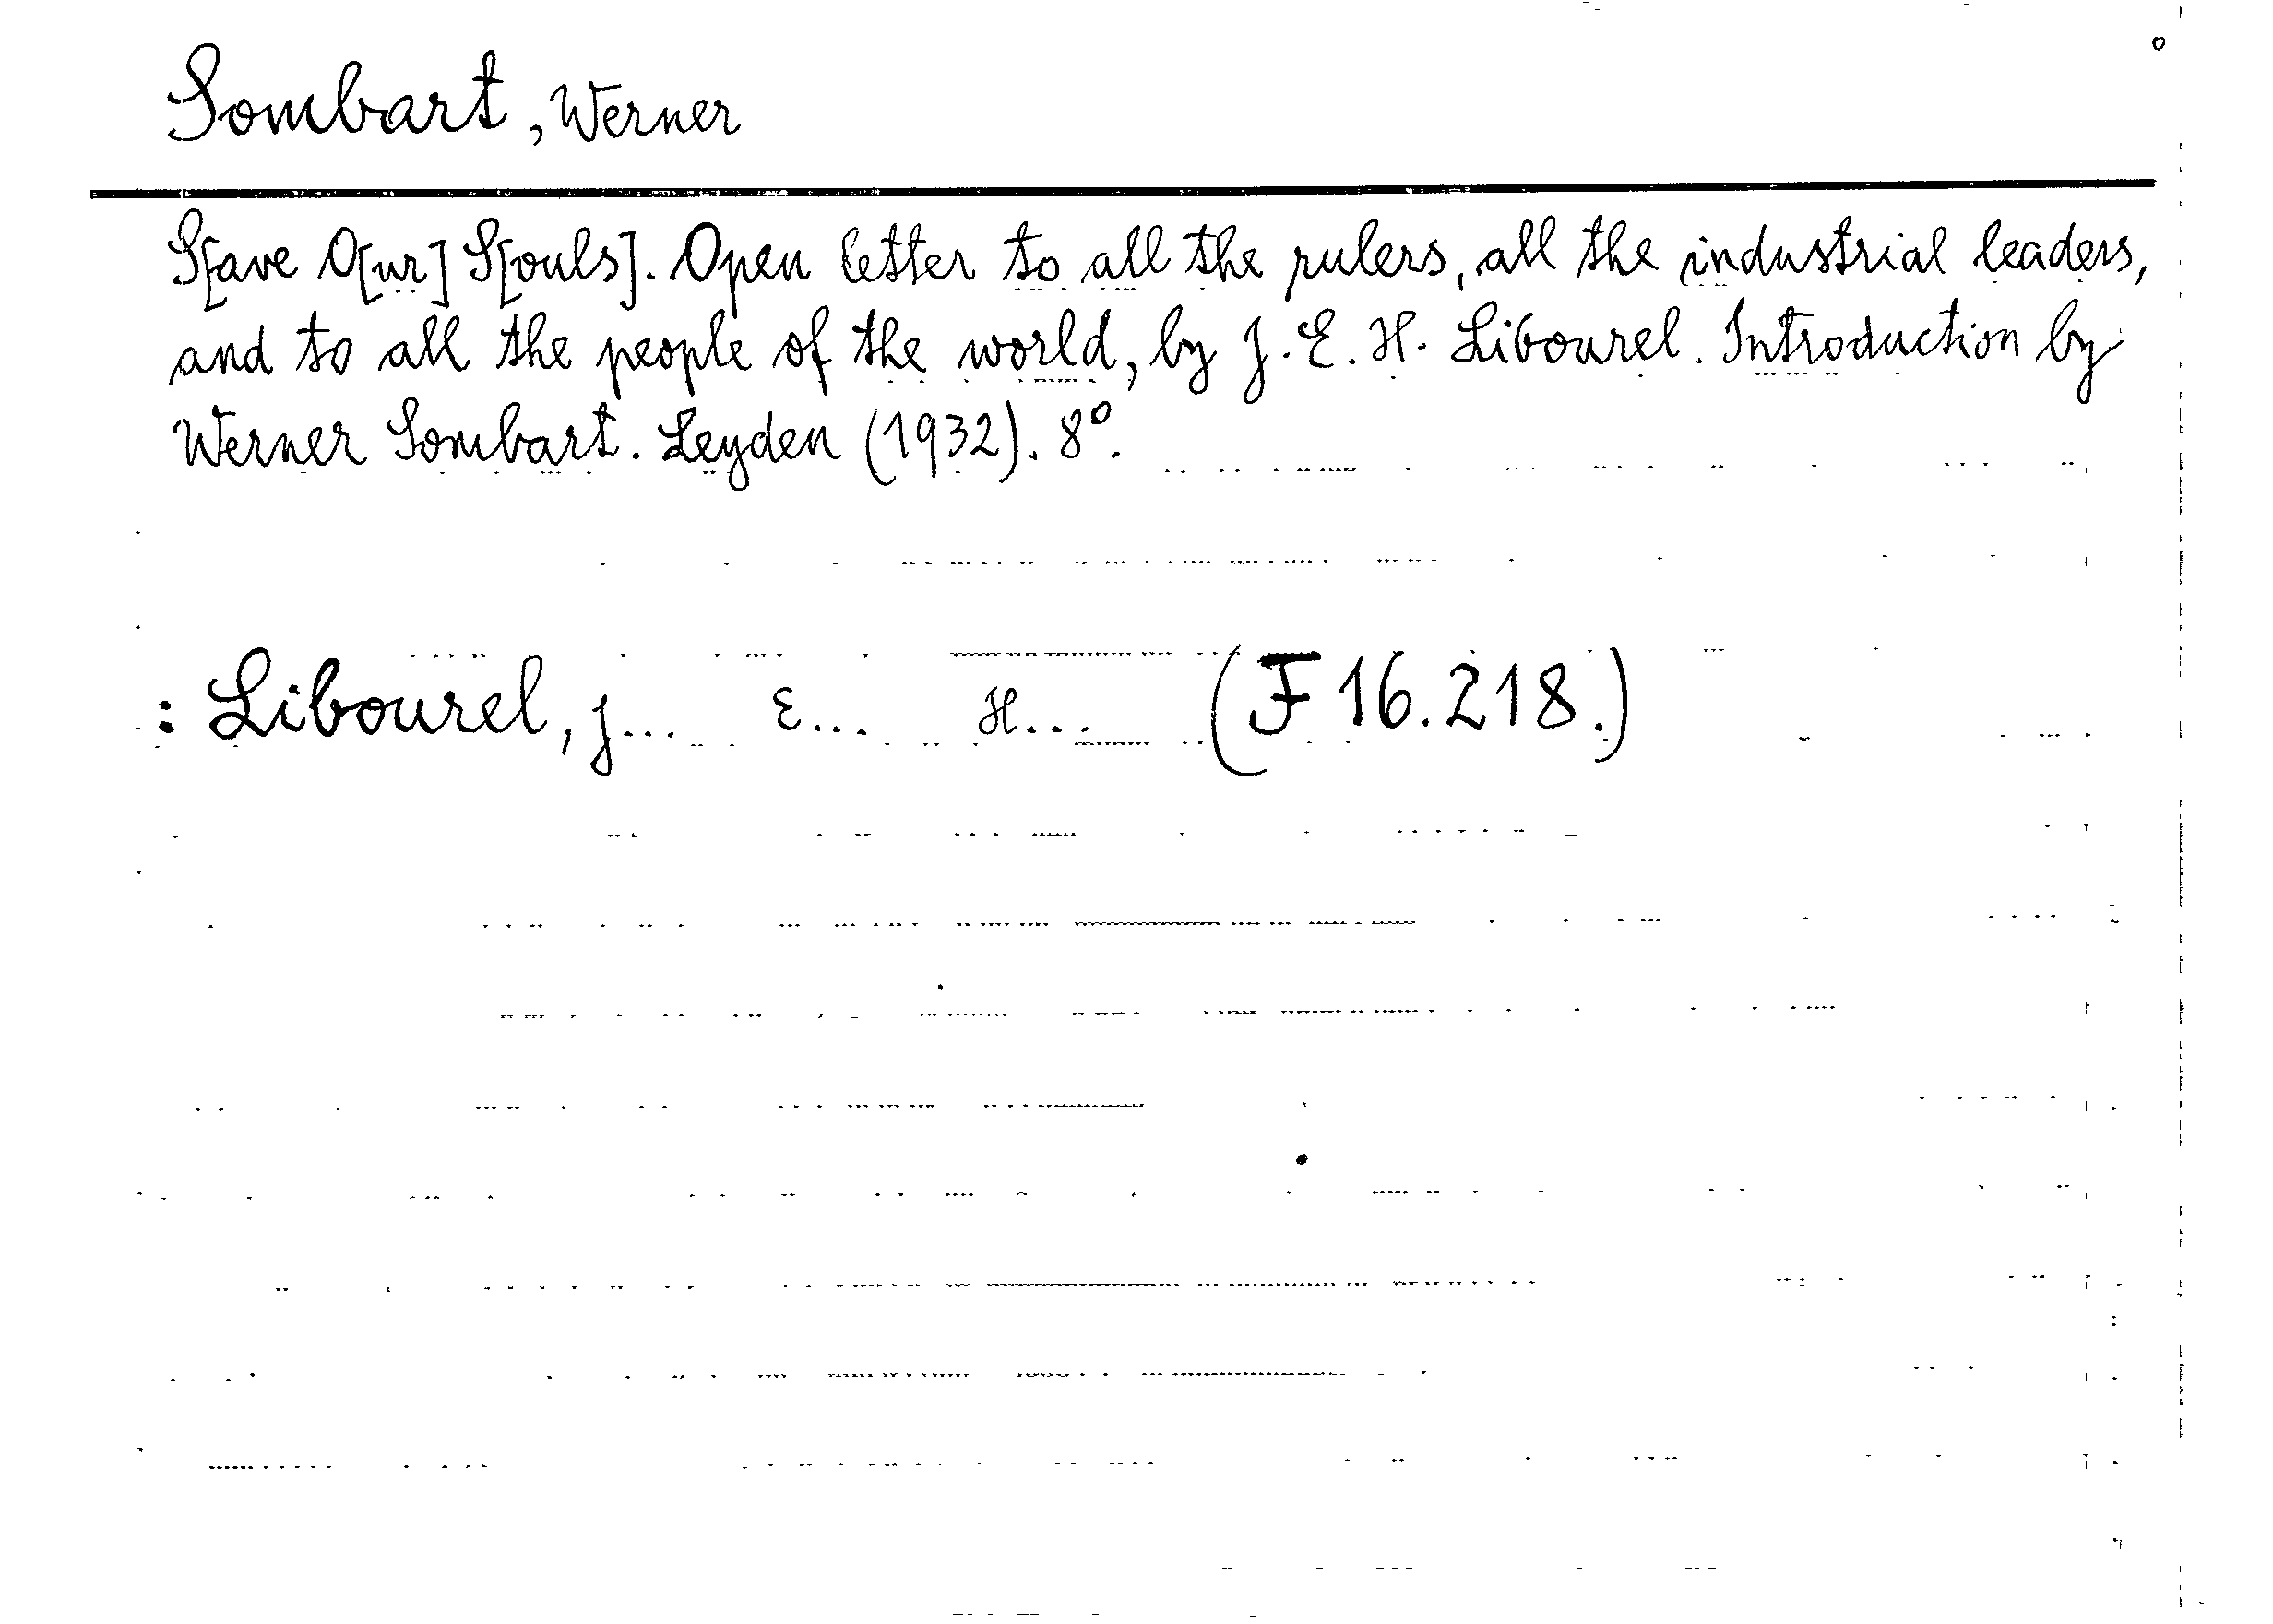 Sombart, Werner
S[ave O[ur] S[ouls]. Open letter to all the rulers, all the industrial leaders,
and to all the people of the world, by J. E. H. Libourel. Introduction by
Werner Sombart. Leyden (1932). 8°.
: Libourel, J... E... H... (F 16.218.)